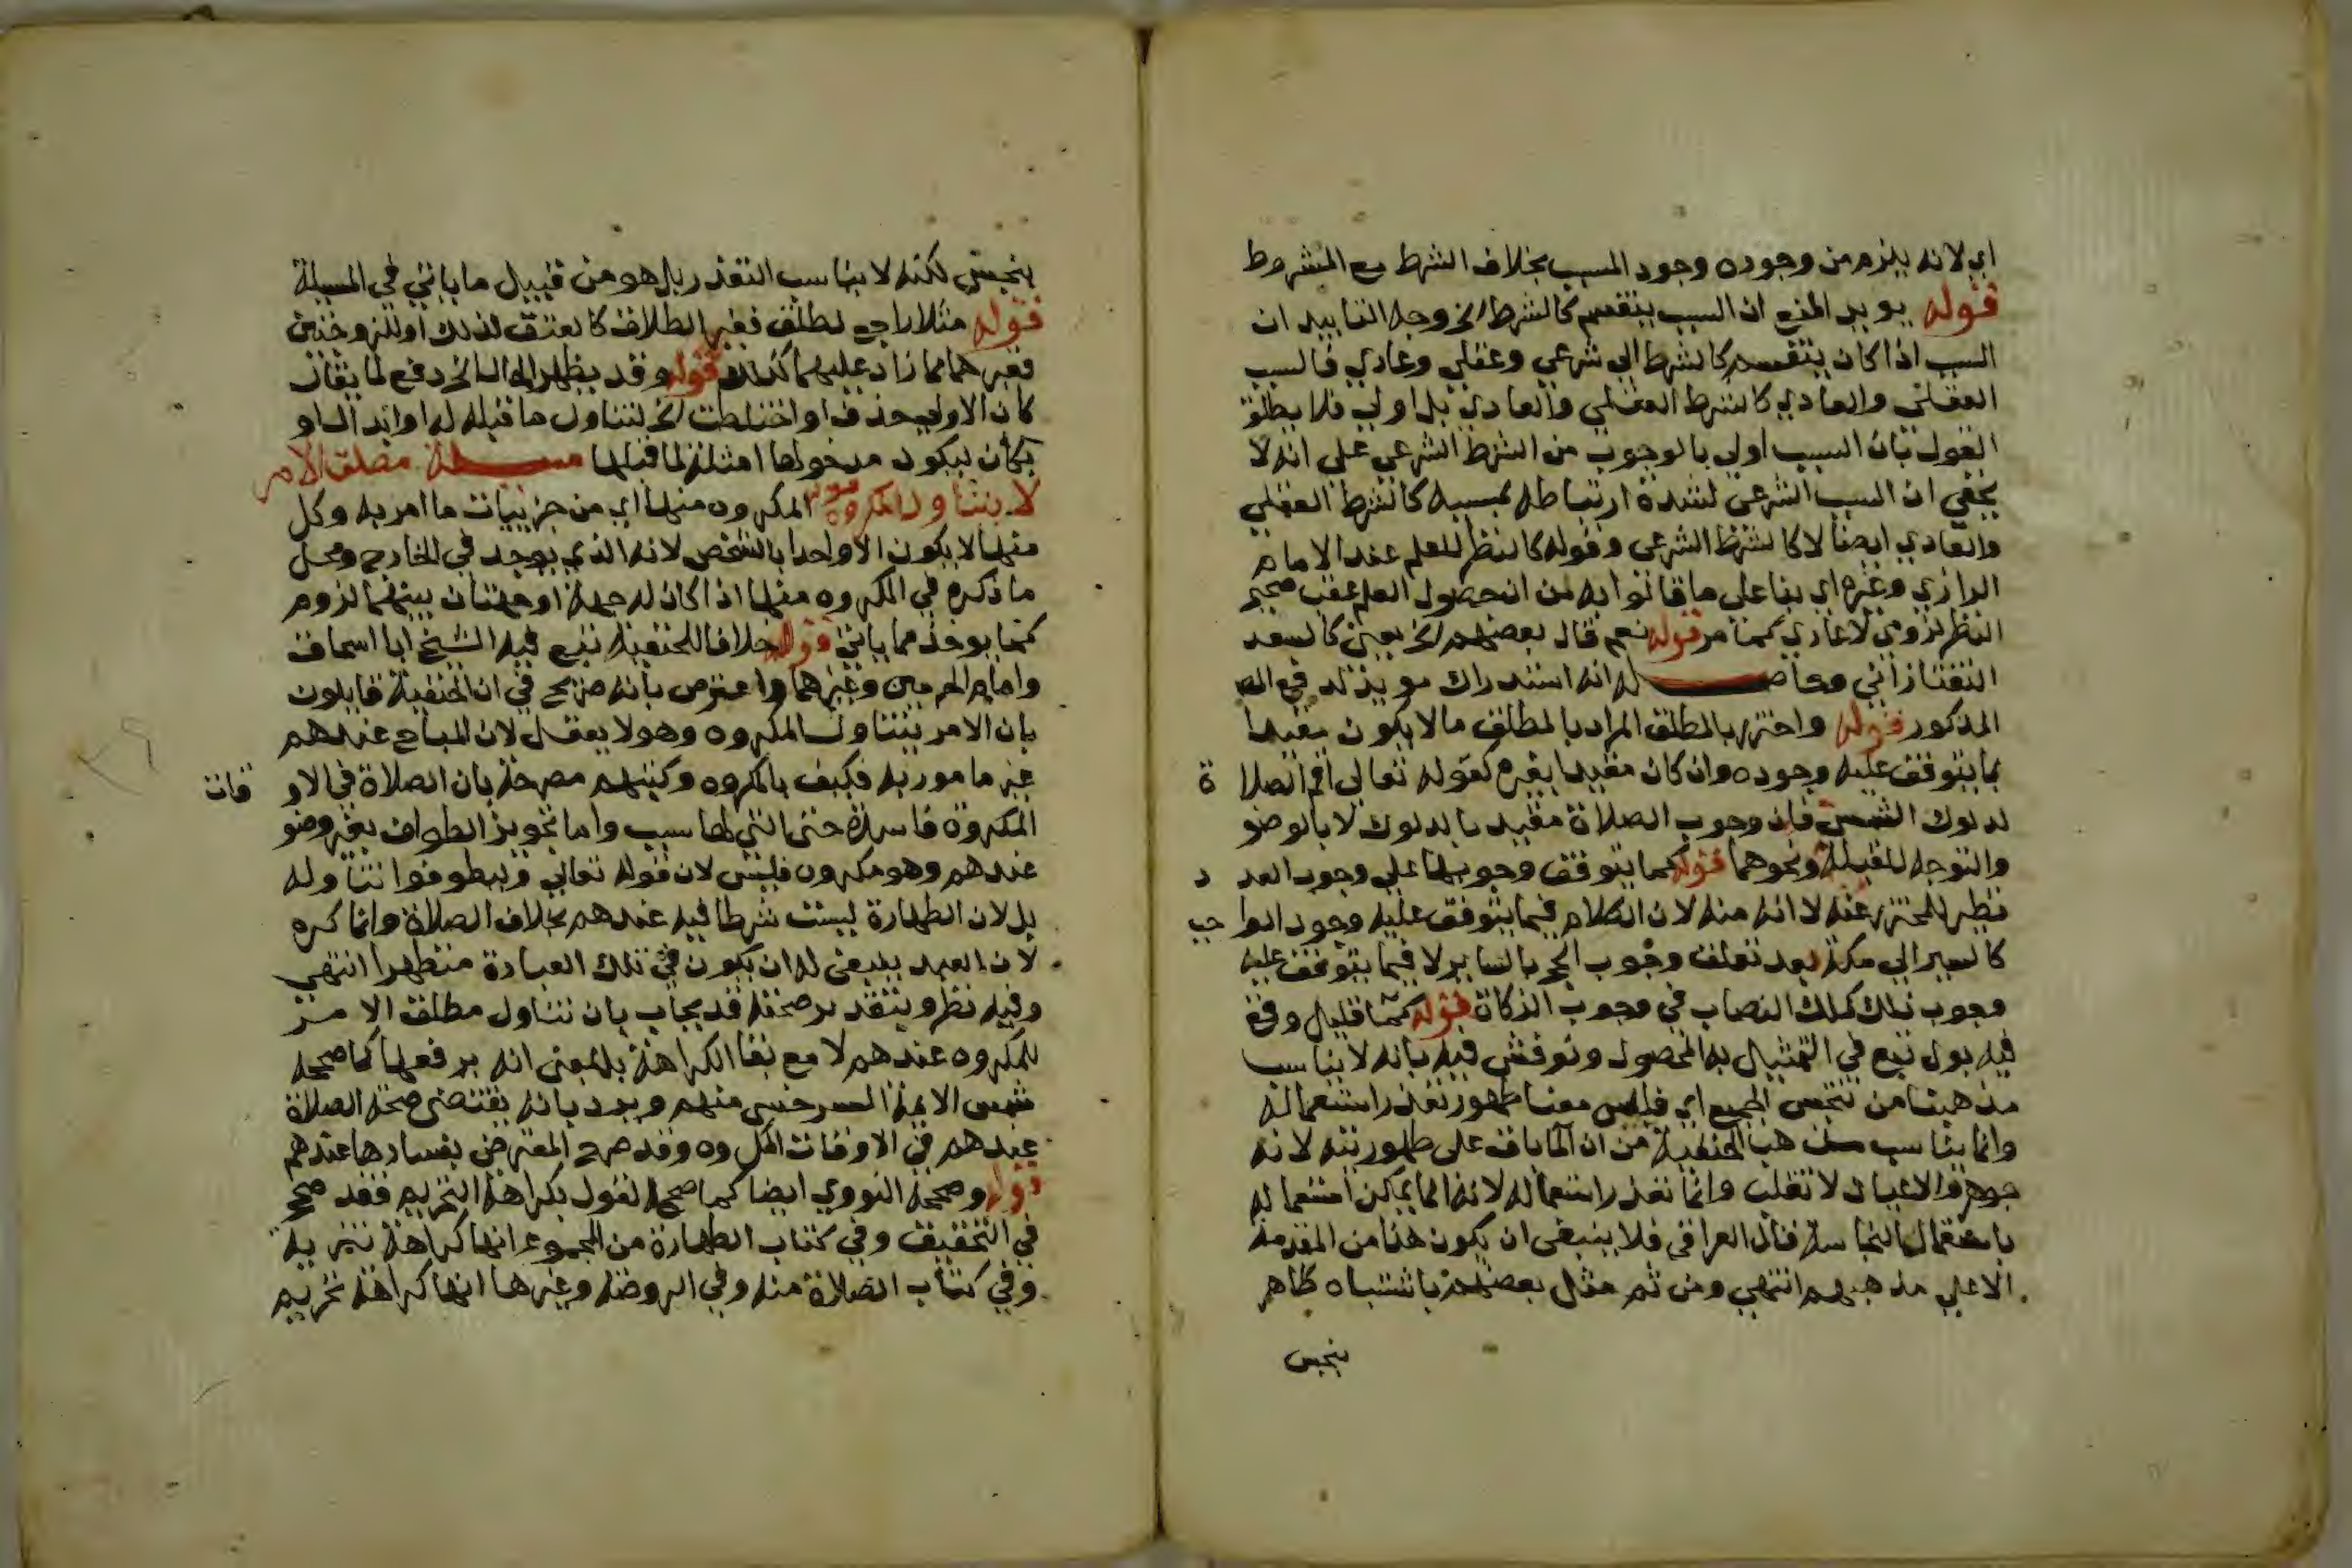 اي لانه يلزم من وجوده وجود المسبب بخلاف الشرط مع المشروط
قوله يويد المنع ان السبب ينقسم كالشرط الخ وجه التاييد ان
السبب اذا كان ينقسم كالشرط الي شرعي وعقلي وعادي فالسبب
العقلي والعادي كالشرط العقلي والعادي بل اولي فلا يطلق
القول بان السبب اولي بالوجوب من الشرط الشرعي علي انه لا
يخفي ان السبب الشرعي لشدة ارتباطه بمسببه كالشرط العقلي
والعادي ايضا لا كالشرط الشرعي وقوله كالنظر للعلم عند الامام
الرازي وغيره اي بنا علي ما قالوا به من ان حصول العلم عقب صحيح
النظر لزومي لا عادي كما مر قوله نعم قال بعضهم الخ يعني كالسعد
التفتازاني وحاصله انه استدراك مويد لدفع
المذكور قوله واحترز بالمطلق المراد بالمطلق ما لا يكون مقيدا
بما يتوقف عليه وجوده وان كان مقيدا بغيره كقوله تعالي اقم الصلاة
لدلوك الشمس فان وجوب الصلاة مقيد بالدلوك لا بالوضو
والتوجه للقبلة ونحوهما قوله كما يتوقف وجوبها علي وجوب العدد
نظير للمحترز عنه لا انه منه لان الكلام فيما يتوقف عليه وجود الواجب
كالسير الي مكة بعد تعلق وجوب الحج بالساير لا فيما يتوقف عليه
وجوب ذلك كملك النصاب في وجوب الزكاة قوله كما قليل وقع
فيه بول تبع في التمثيل به المحصول ونوقش فيه بانه لا يناسب
مذهبنا من تنجس الجميع اي فليس معنا طهور تعذر استعماله
وانما يناسب مذهب الحنفية من ان الما باق علي طهوريته لانه
جوهر والاعيان لا تقلب وانما تعذر استعماله لانه انما يمكن استعماله
باستعمال النجاسة قال العراقي فلا ينبغي ان يكون هذا من المقدمة
الا علي مذهبهم انتهي ومن ثم مثل بعضهم باشتباه طاهر
بنجس
بنجس لكنه لا يناسب التعذر بل هو من قبيل ما ياتي في المسيلة
قوله مثلا راجع لطلق فغير الطلاق كالعتق كذلك او للزوجتين
فغيرهما مما زاد عليهما كذلك قوله وقد يظهر الخ دفع لما يقال
كان الاولي حذف او اختلطت الخ لتناول ما قبله له او ابدال او
بكان ليكون مدخولها امثلة لما قبلها مسيلة مطلق الامر
لا يتناول المكروه قوله المكروه منها اي من جزييات ما امر به وكل
منها لا يكون الا واحدا بالشخص لانه الذي يوجد في الخارج ومحل
ما ذكره في المكروه منها اذا كان له جهة او جهتان بينهما لزوم
كما يوخذ مما ياتي قوله خلافا للحنفية تبع فيه الشيخ ابا اسحاق
وامام الحرمين وغيرهما واعترض بانه صريح في ان الحنفية قايلون
بان الامر يتناول المكروه وهو لا يعقل لان المباح عندهم
غير مامور به فكيف بالمكروه وكتبهم مصرحة بان الصلاة في الاوقات
المكروة فاسدة حتي التي لها سبب واما تجويز الطواف بغير وضو
عندهم وهو مكروه فليس لان قوله تعالي وليطوفوا تناوله
بل لان الطهارة ليست شرطا فيه عندهم بخلاف الصلاة وانما كره
لان العبد ينبغي له ان يكون في تلك العبادة متطهرا انتهي
وفيه نظر وبتقدير صحته قد يجاب بان تناول مطلق الامر
للمكروه عندهم لا مع بقا الكراهة بل بمعني انه يرفعها كما صححه
شمس الايمة السرخسي منهم ويرد بانه يقتضي صحة الصلاة
عندهم في الاوقات المكروه وقد صرح المعترض بفسادها عندهم
قوله وصححه النووي ايضا كما صحح القول بكراهة التحريم فقد صحح
في التحقيق وفي كتاب الطهارة من المجموع انها كراهة تنزيه
وفي كتاب الصلاة منه وفي الروضة وغيرها انها كراهة تحريم